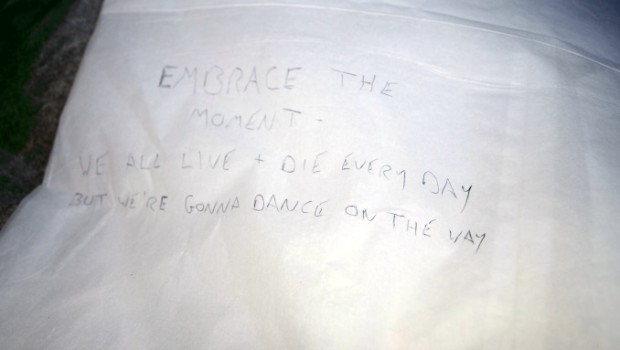 EMBRACE THE
MOMENT -
WE ALL LIVE + DIE EVERY DAY
BUT WE'RE GONNA DANCE ON THE WAY